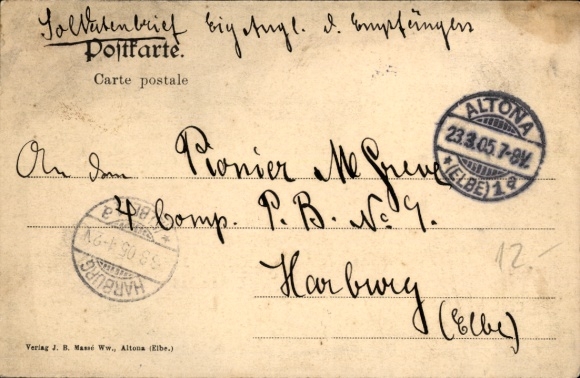 Soldatenbrief Eig Angl. d. Empfängers
Postkarte.
Carte postale
ALTONA
23.3.05.7-8½V.
*(ELBE)1a
An den Pionier M Greve
4 Comp. P. B. No 9.
HARBURG
12.-
Harburg
(Elbe)
Verlag J. B. Massé Ww., Altona (Elbe.)